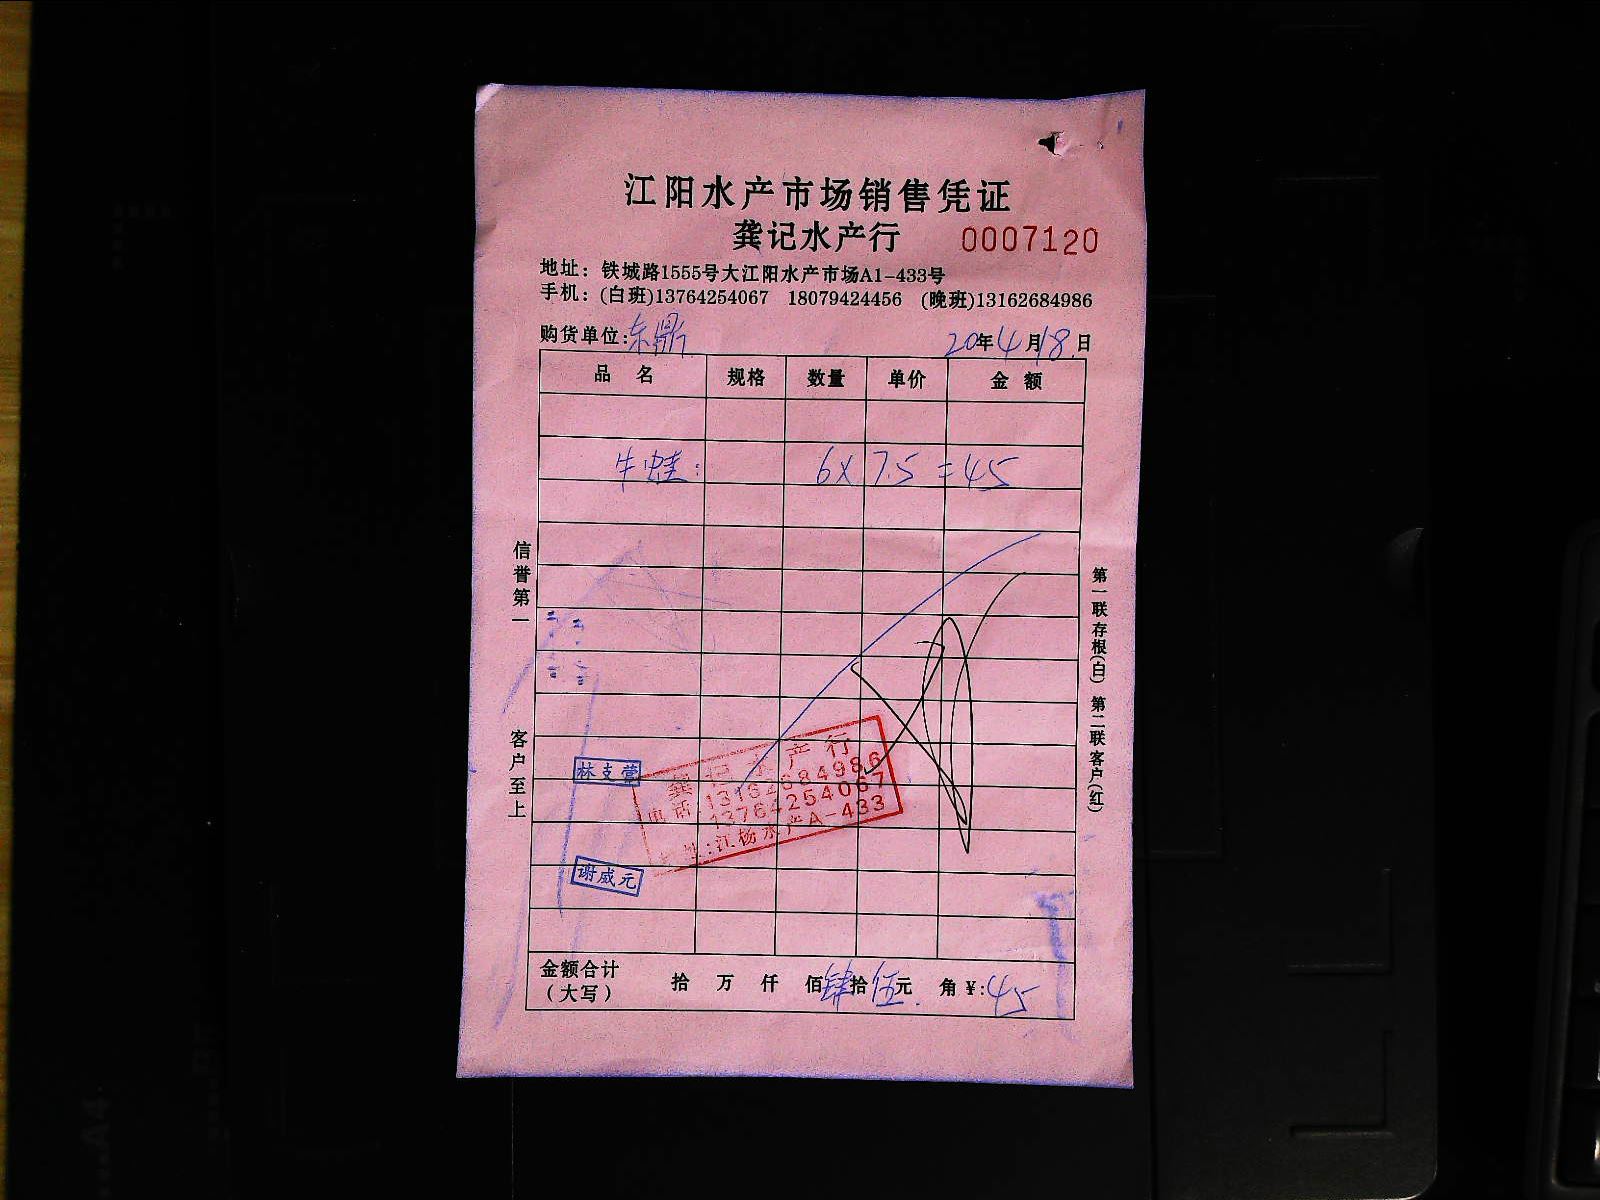 江阳水产市场销售凭证
龚记水产行 0007120
地址：铁城路1555号大江阳水产市场A1-433号
手机：(白班)13764254067 18079424456 (晚班)13162684986
购货单位:东鼎 20年4月18日
品名 规格 数量 单价 金额
牛蛙: 6× 7.5 =45
信誉第一 客户至上
第一联存根(白) 第二联客户(红)
林支营
龚记水产行
电话:13162684986
13764254067
地址:江杨水产A-433
谢威元
金额合计（大写） 拾 万 仟 佰肆拾伍元 角 ¥:45